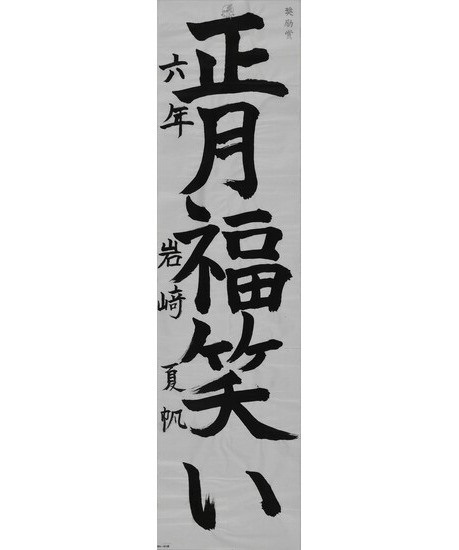 奨励賞
正月福笑い
六年 岩﨑 夏帆